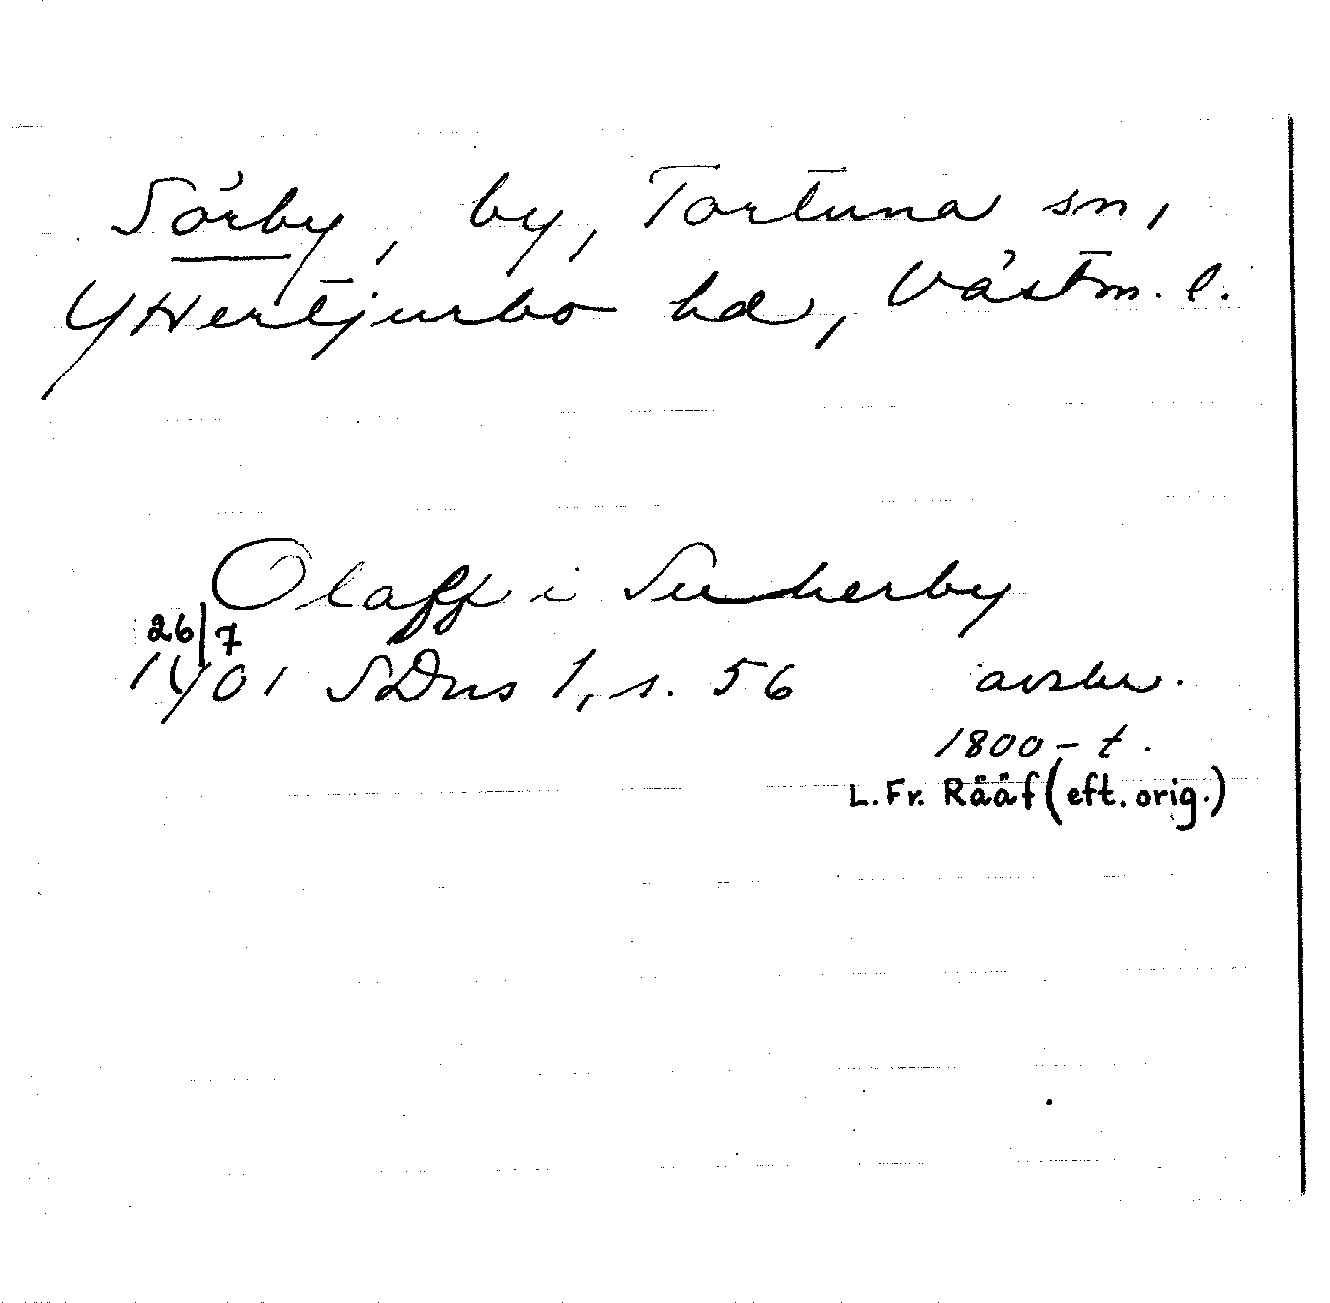 Sörby, by, Tortuna sn,
Yttertjurbo hd, Västm. l.
Olaff i Sudherby
26/7
1401 SDns 1, s. 56 avskr.
1800-t.
L. Fr. Rääf (eft. orig.)